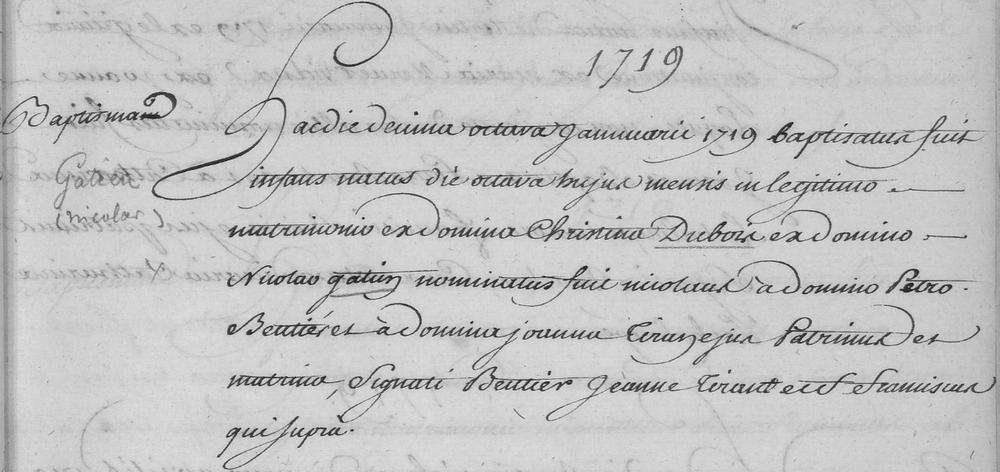 1719
Baptisma
Galien
(nicolas)
hac die decima octava Januarii 1719 baptisatus fuit
infans natus die octava hujus mensis in legitimo
matrimonio ex domina Christina Dubois ex domino
Nicolao galien nominatus fuit nicolaus à domino Petro
Beutier et à domina joanna Tiran ejus Patrinus et
matrina, Signati Beutier Jeanne Tirant et f Franciscus
qui suprà.